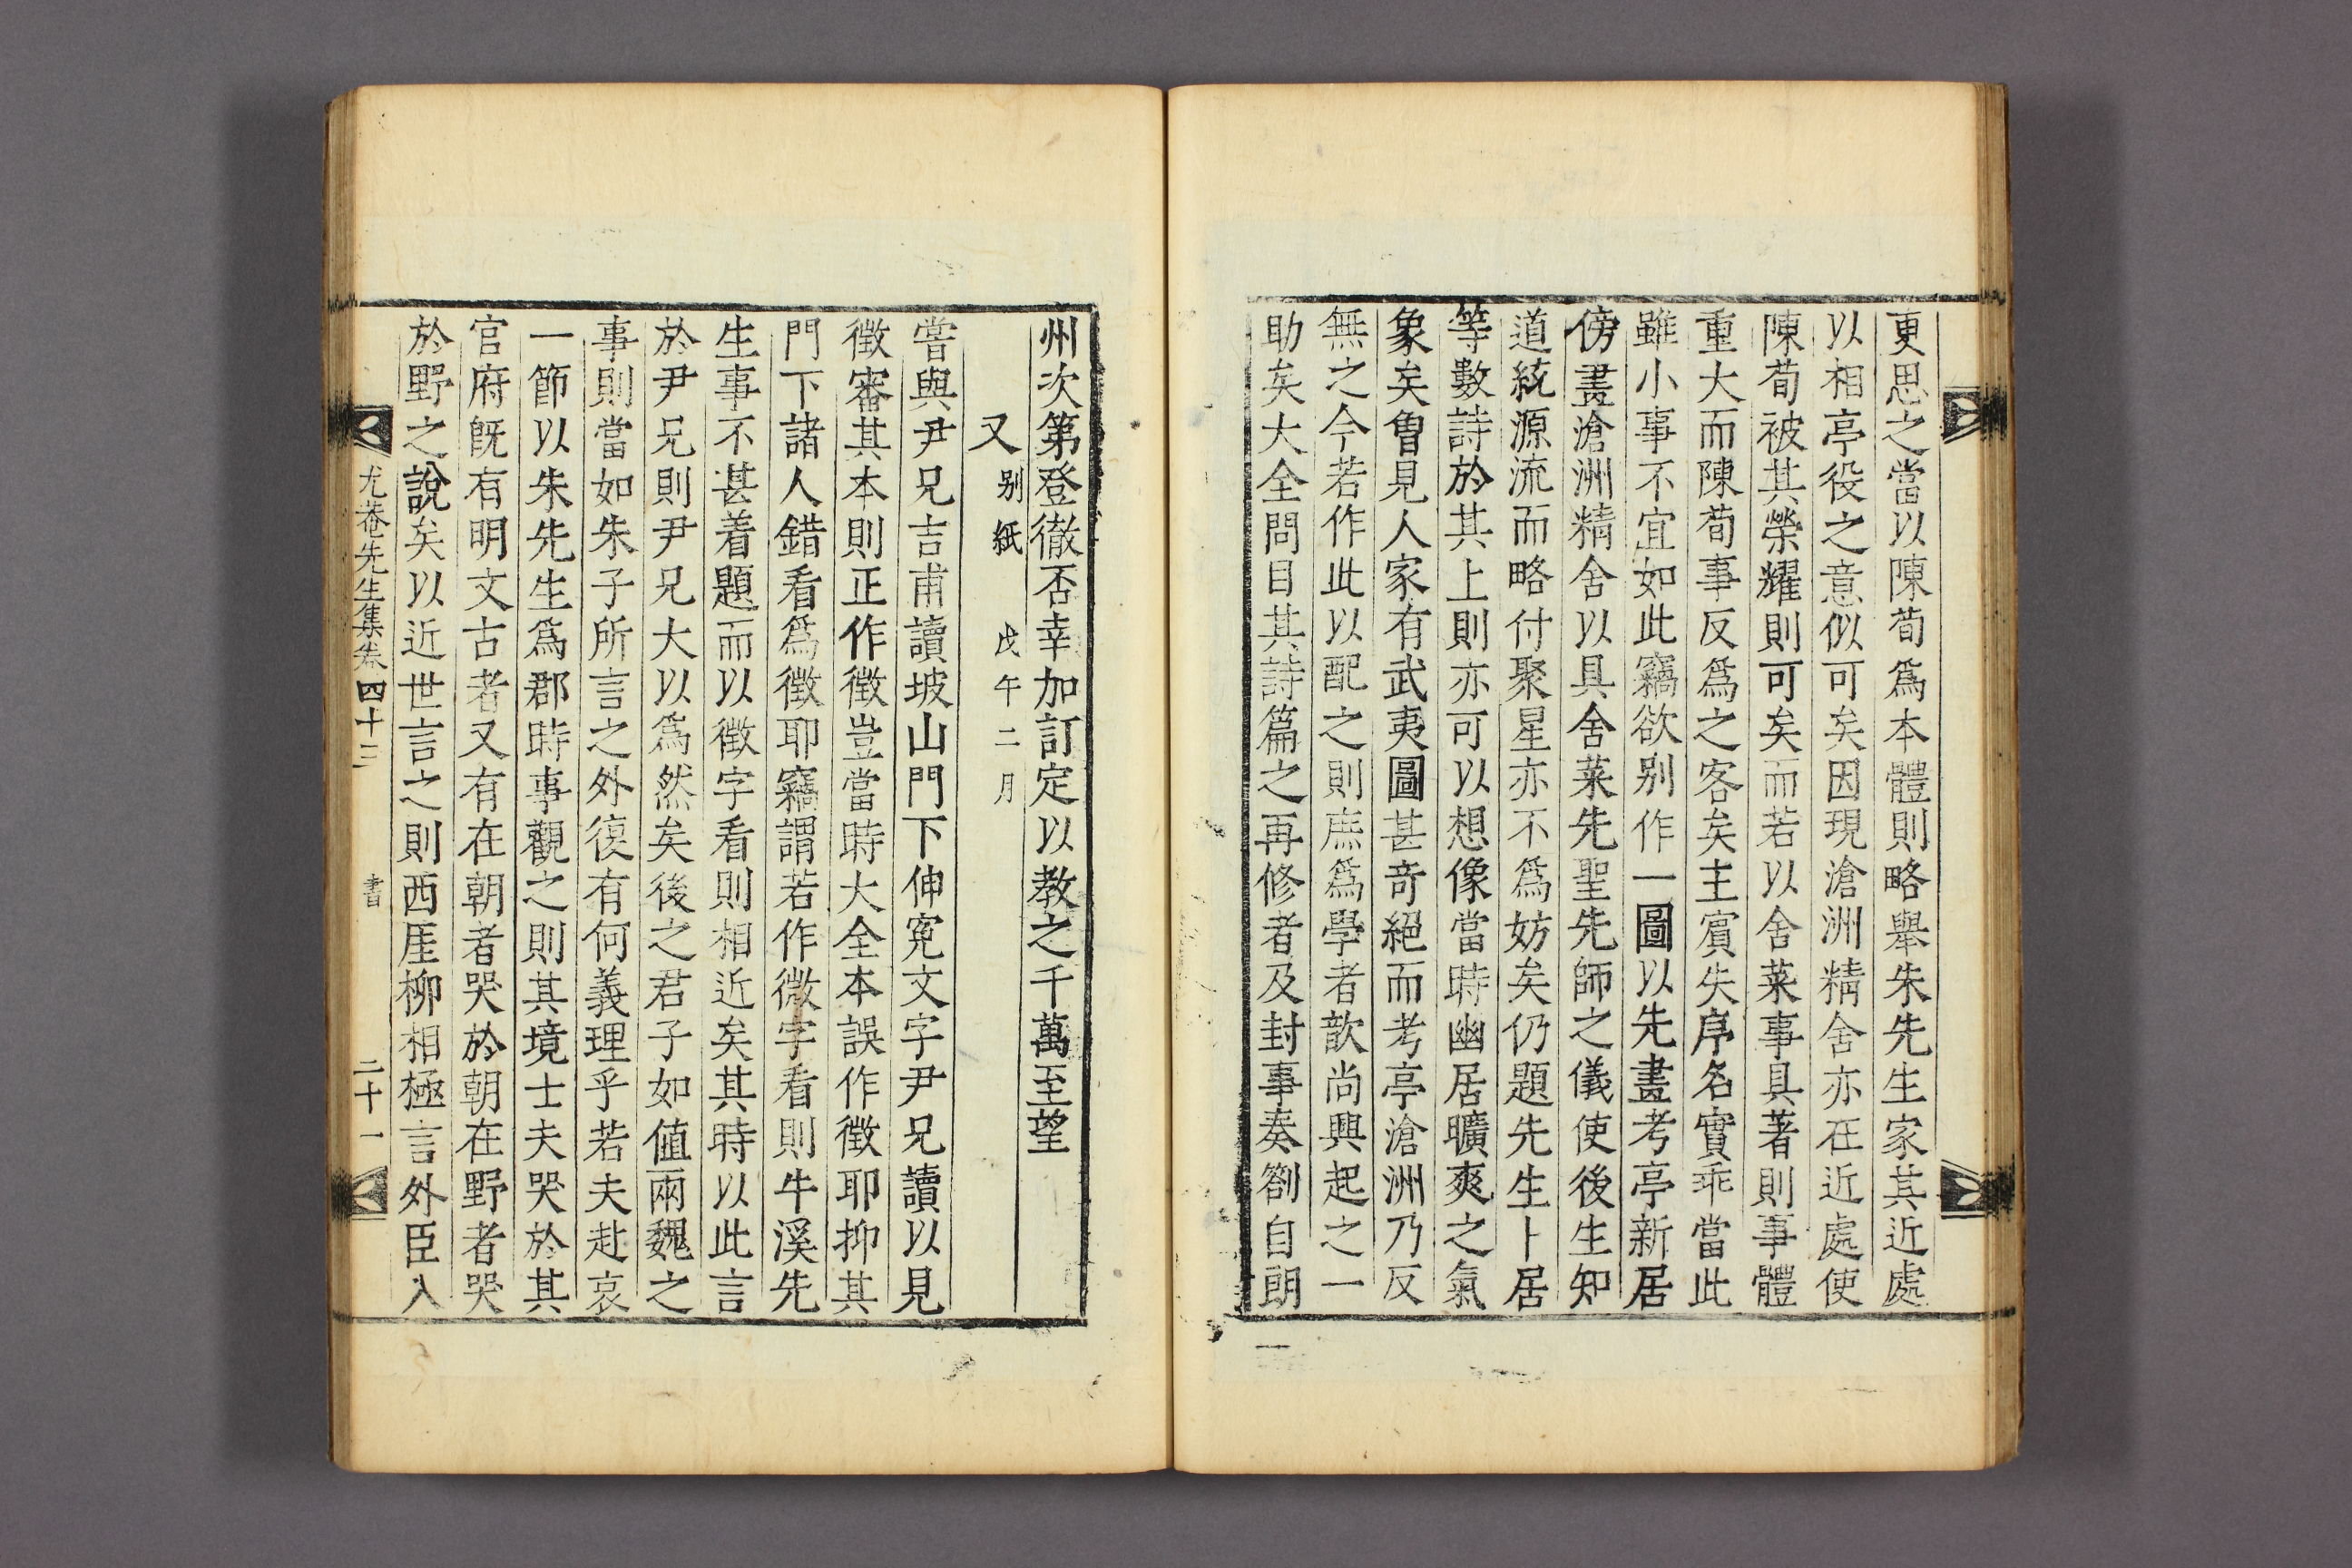 更思之當以陳荀爲本體則略擧朱先生家其近處
以相亭役之意似可矣因現滄洲精舍亦在近處使
陳荀被其榮耀則可矣而若以舍菜事具著則事體
重大而陳荀事反爲之客矣主賓失序名實乖當此
雖小事不宜如此竊欲别作一圖以先畫考亭新居
傍畫滄洲精舍以具舍菜先聖先師之儀使後生知
道統源流而略付聚星亦不爲妨矣仍題先生卜居
等數詩於其上則亦可以想像當時幽居曠爽之氣
象矣曾見人家有武夷圖甚奇絕而考亭滄洲乃反
無之今若作此以配之則庶爲學者歆尚興起之一
助矣大全問目其詩篇之再修者及封事奏劄自朗
州次第登徹否幸加訂定以教之千萬至望
又 别紙 戊午二月
嘗與尹兄吉甫讀坡山門下伸寃文字尹兄讀以見
徵審其本則正作徵豈當時大全本誤作徵耶抑其
門下諸人錯看爲徵耶竊謂若作微字看則牛溪先
生事不甚着題而以徵字看則相近矣其時以此言
於尹兄則尹兄大以爲然矣後之君子如値兩魏之
事則當如朱子所言之外復有何義理乎若夫赴哀
一節以朱先生爲郡時事觀之則其境士夫哭於其
官府旣有明文古者又有在朝者哭於朝在野者哭
於野之說矣以近世言之則西厓柳相極言外臣入
尤菴先生集卷四十三 書 二十一